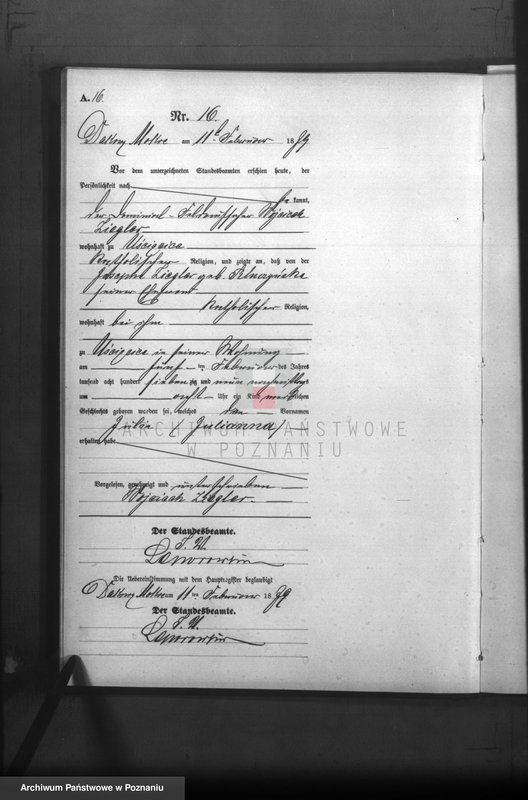 A. 16.
Nr. 16.
Dakowy Mokre am 11t Februar 1879
Vor dem unterzeichneten Standesbeamten erschien heute, der
Persönlichkeit nach
be kannt,
der Dominial- Wojciech
Ziegler
wohnhaft zu Uścięcice
katholischer Religion, und zeigte an, daß von der
Josepha Ziegler geb.
seiner Ehefrau
katholischer Religion,
wohnhaft bei ihm
zu Uścięcice in seiner Wohnung
am fünf ten Februar des Jahres
tausend acht hundert sieben zig und neun
um Uhr ein Kind weiblichen
Geschlechts geboren worden sei, welches den Vornamen
Julie Julianna/
erhalten habe
Vorgelesen, genehmigt und unterschrieben
Wojciech Ziegler.
Der Standesbeamte.
Die Uebereinstimmung mit dem Hauptregister beglaubigt
Dakowy Mokre am 11 ten Februar 1879
Der Standesbeamte.
ARCHIWUM PAŃSTWOWE
W POZNANIU
Archiwum Państwowe w Poznaniu